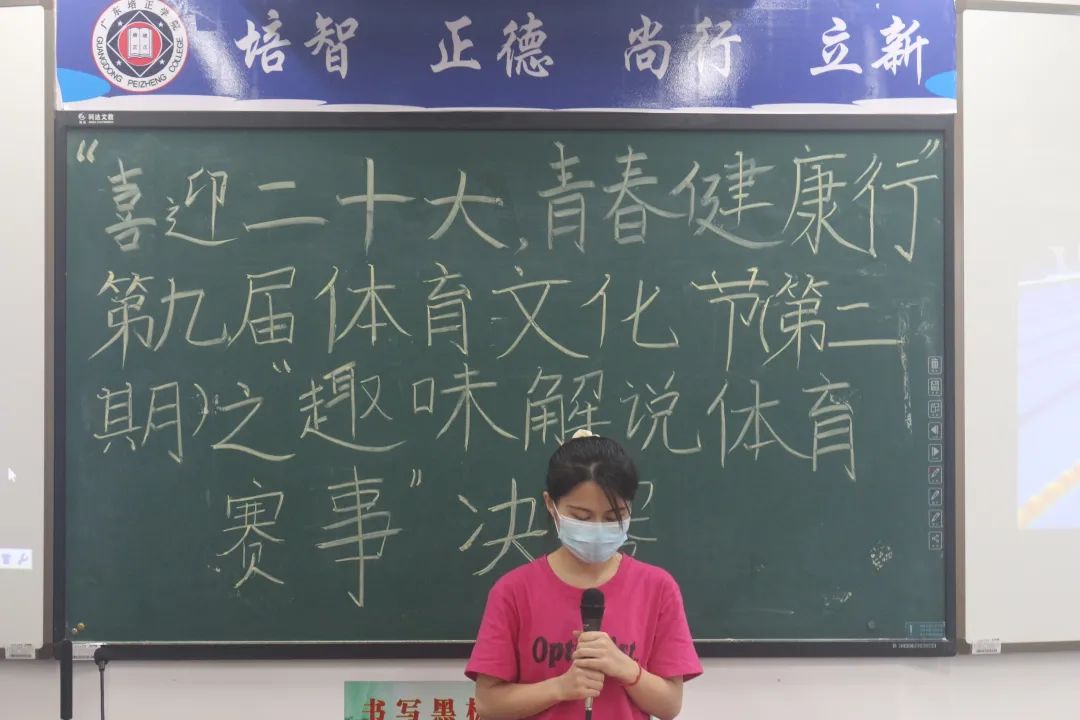 广东培正学院
GUANGDONG PEIZHENG COLLEGE
培智 正德 尚行 立新
“喜迎二十大,青春健康行”
第九届体育文化节(第二
期)之“趣味解说体育
赛事”决
书写墨